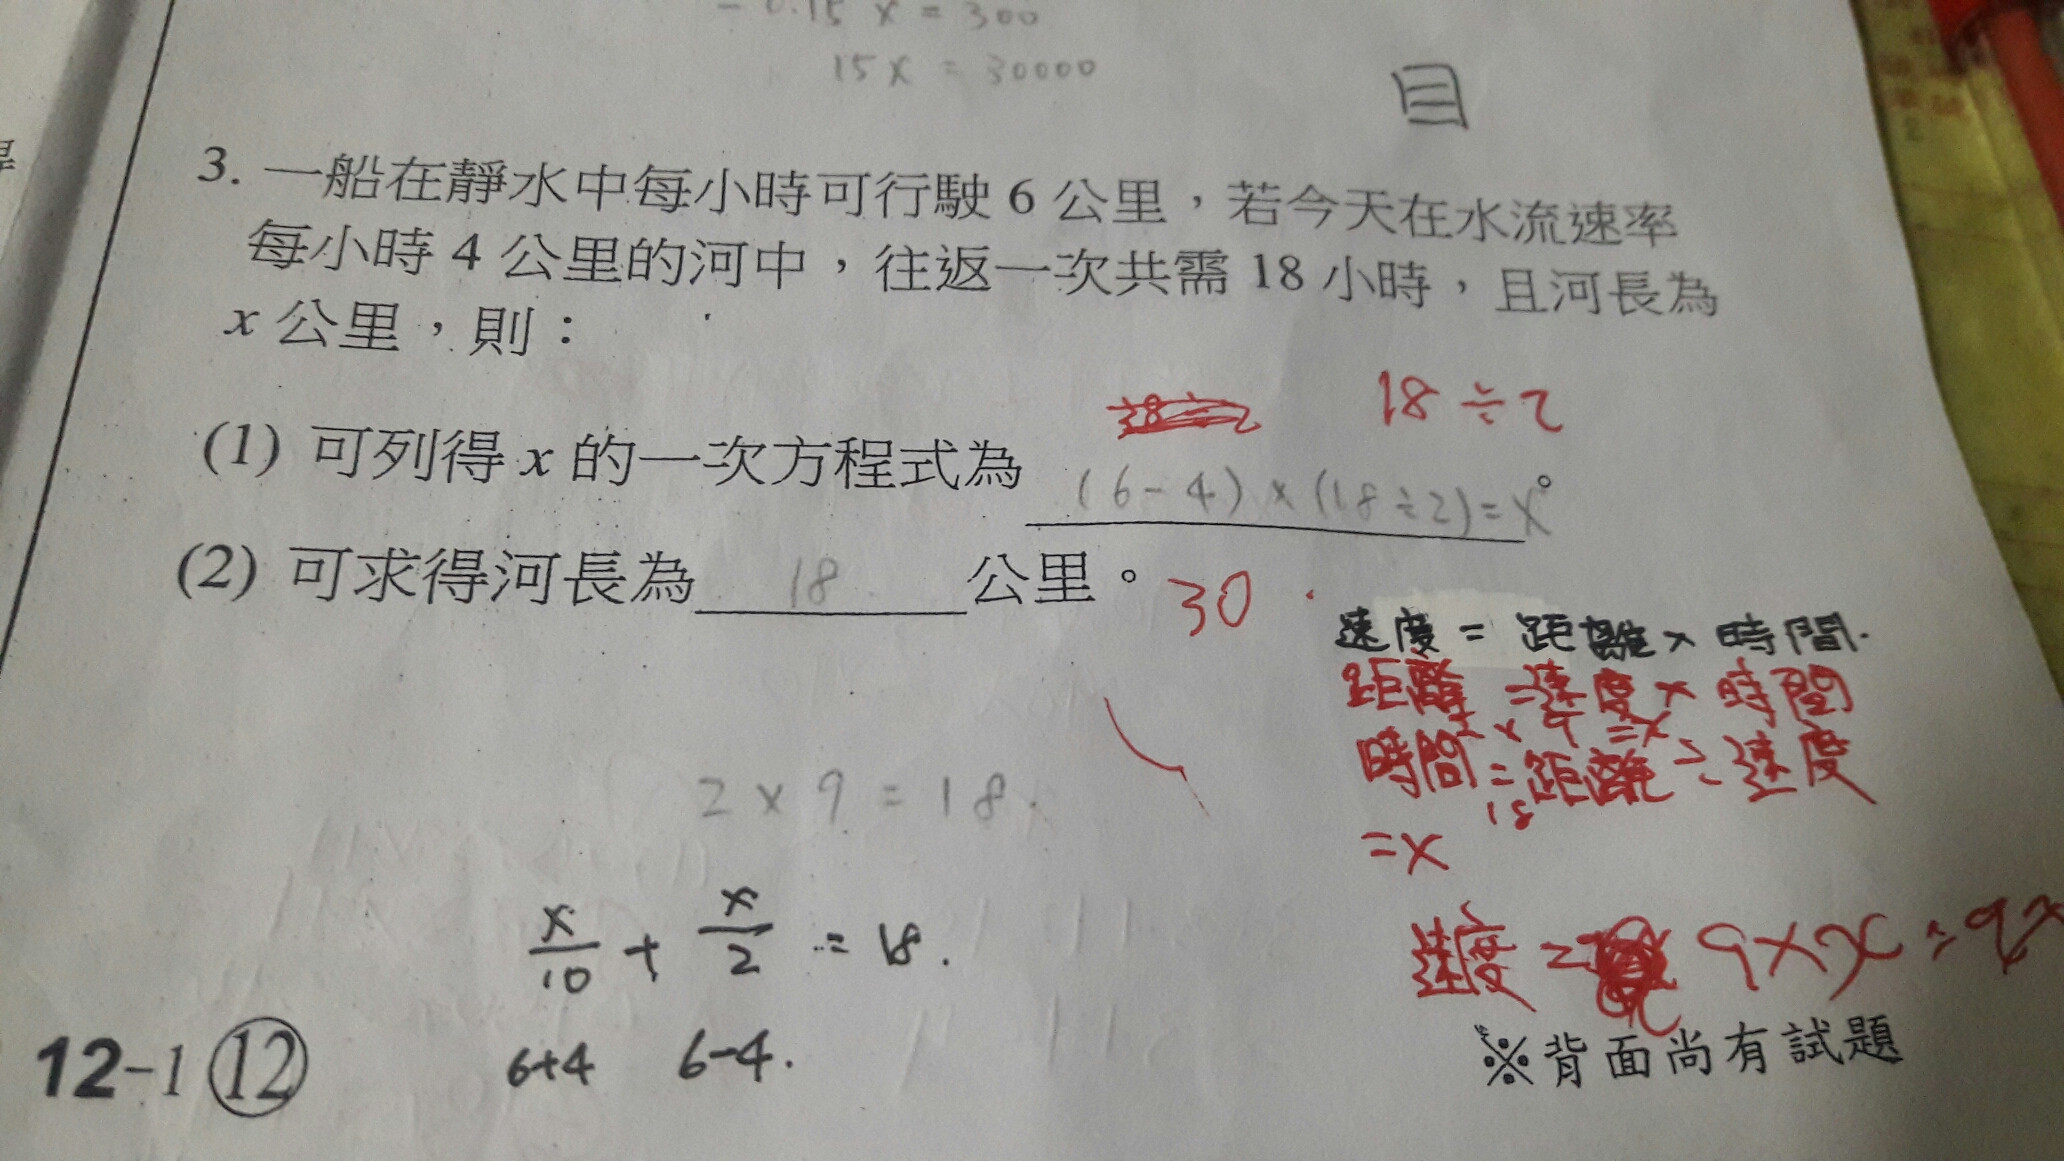 - 0.15 x = 300
15x = 30000
3. 一船在靜水中每小時可行駛 6 公里，若今天在水流速率
每小時 4 公里的河中，往返一次共需 18 小時，且河長為
x 公里，則：
18 ÷ 2
(1) 可列得 x 的一次方程式為 (6-4) x (18÷2) = x 。
(2) 可求得河長為 18 公里。 30
速度 = 距離 x 時間.
距離 = 速度 x 時間
x 9 = x
時間 = 距離 ÷ 速度
18
= x
2 x 9 = 18.
x/10 + x/2 = 18.
6+4 6-4.
速度 = 9 x x = 9x
※背面尚有試題
12-1 ⑫